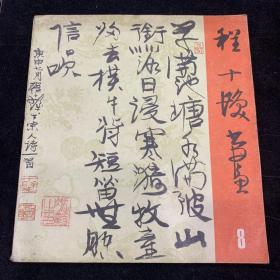 程十髮書畫
8
草满池塘水满陂山
衔落日浸寒漪牧童
归去横牛背短笛無腔
信口吹
庚申七月 程十髮書宋人诗一首